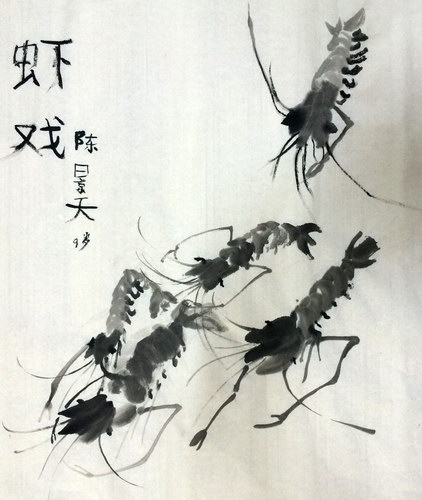 虾戏
陈景天
9岁